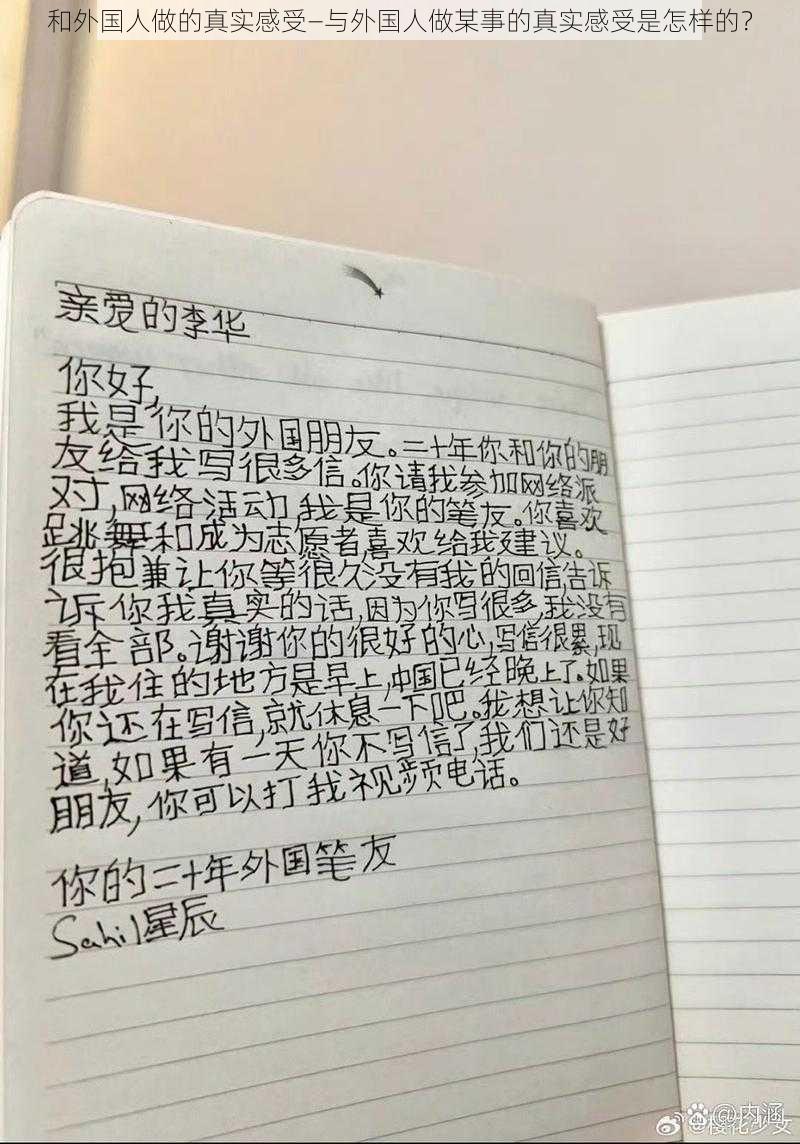 和外国人做的真实感受—与外国人做某事的真实感受是怎样的?
亲爱的李华
你好,
我是你的外国朋友。二十年你和你的朋
友给我写很多信。你请我参加网络派
对,网络活动,我是你的笔友。你喜欢
跳舞和成为志愿者喜欢给我建议。
很抱兼让你等很久没有我的回信,告诉
诉你我真实的话,因为你写很多,我没有
看全部。谢谢你的很好的心,写信很累,现
在我住的地方是早上,中国已经晚上了。如果
你还在写信,就休息一下吧。我想让你知
道,如果有一天你不写信了,我们还是好
朋友,你可以打我视频电话。
你的二十年外国笔友
Sahil星辰
@内涵
@樱花少女